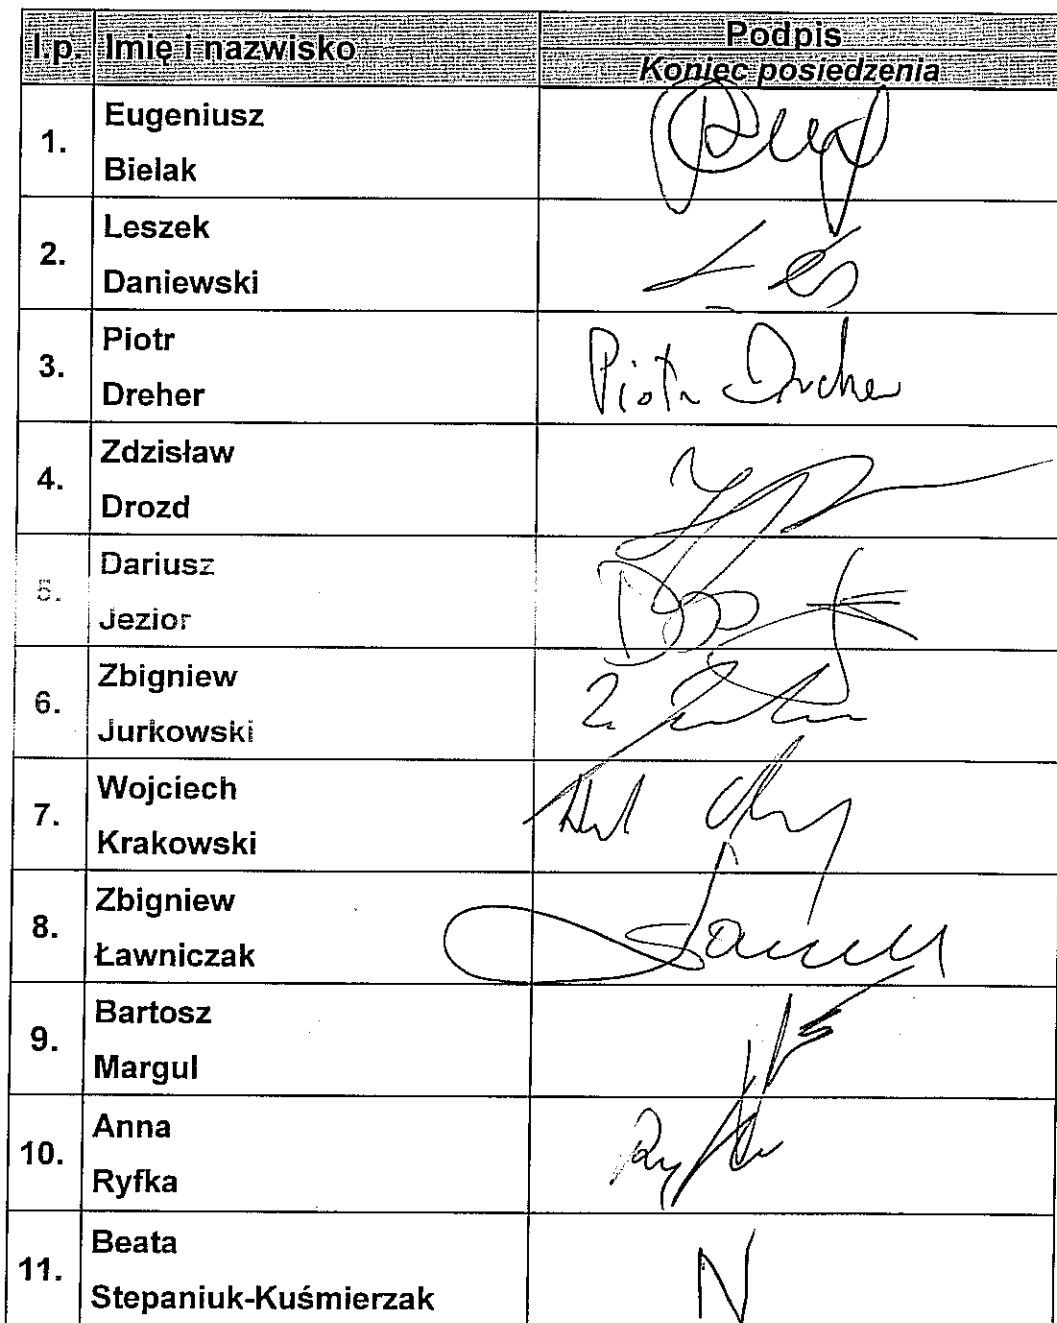 l.p. Imię i nazwisko Podpis
Koniec posiedzenia
1. Eugeniusz
Bielak
2. Leszek
Daniewski
3. Piotr
Dreher
Piotr Dreher
4. Zdzisław
Drozd
5. Dariusz
Jezior
6. Zbigniew
Jurkowski
7. Wojciech
Krakowski
8. Zbigniew
Ławniczak
9. Bartosz
Margul
10. Anna
Ryfka
11. Beata
Stepaniuk-Kuśmierzak
N